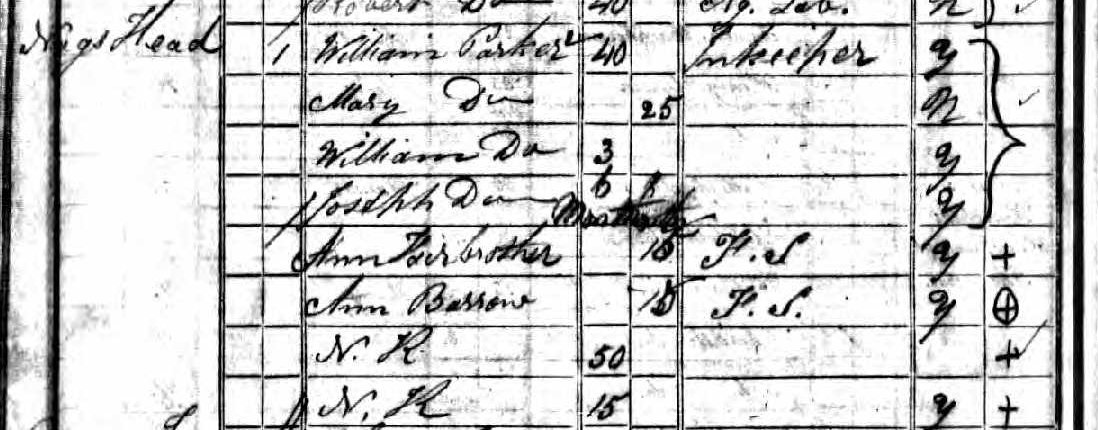 Robert Do 40 Ag. Lab. N
Nags Head 1 William Parker 40 Inkeeper y
Mary Do 25 N
William Do 3 y
Joseph Do 6 Months y
Ann 15 F. S y +
Ann Barrow 15 F. S. y
N. K 50 +
N. K 15 y +